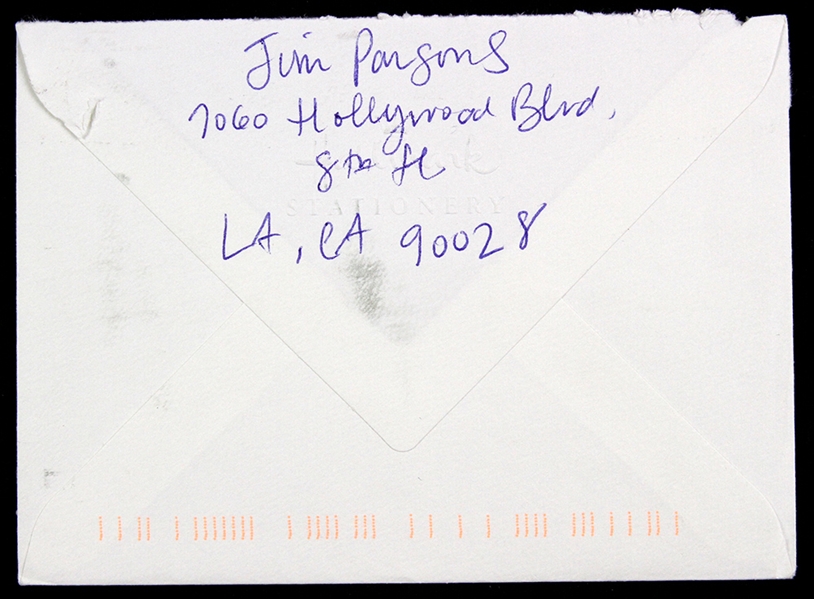 Jim Parsons
7060 Hollywood Blvd,
8th fl
STATIONERY
LA, CA 90028